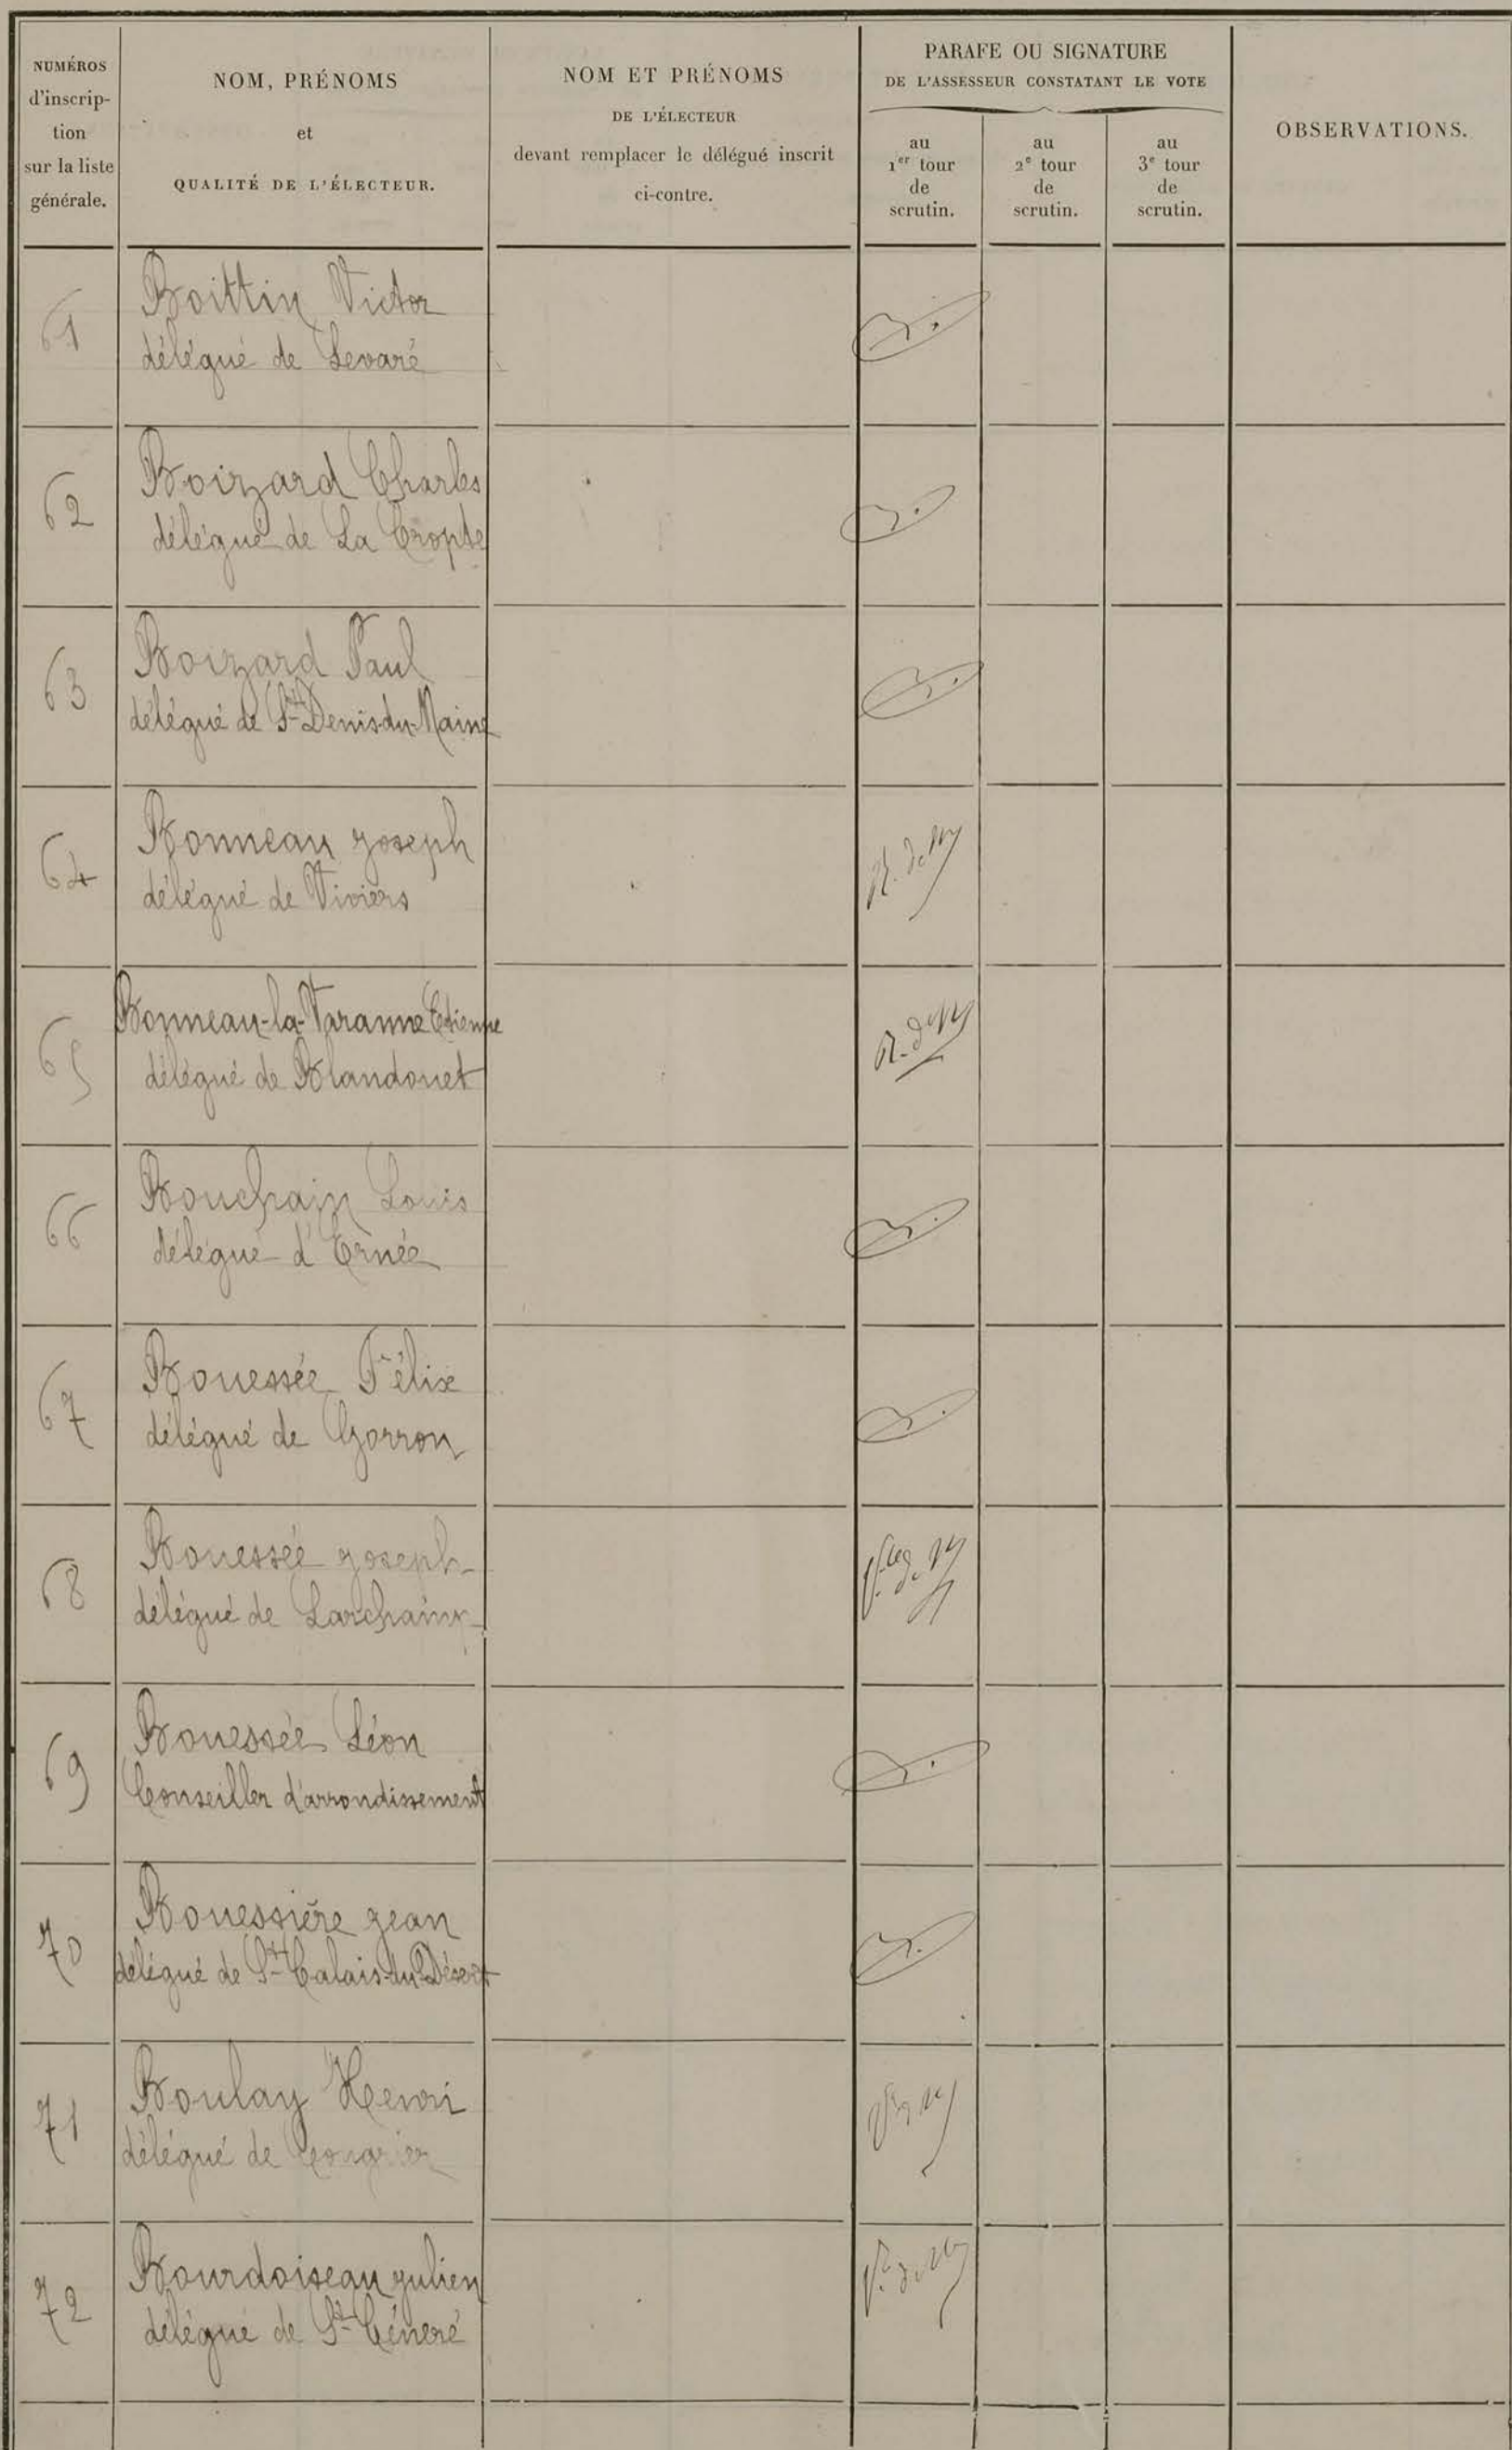 NUMÉROS
d'inscrip-
tion
sur la liste
générale.
NOM, PRÉNOMS
et
QUALITÉ DE L'ÉLECTEUR.
NOM ET PRÉNOMS
DE L'ÉLECTEUR
devant remplacer le délégué inscrit
ci-contre.
PARAFE OU SIGNATURE
DE L'ASSESSEUR CONSTATANT LE VOTE
au
1er tour
de
scrutin.
au
2e tour
de
scrutin.
au
3e tour
de
scrutin.
OBSERVATIONS.
61
Boittin Victor
délégué de Levaré
62
Boizard Charles
délégué de La Cropte
63
Boizard Paul
délégué de St Denis-du-Maine
64
Bonneau Joseph
délégué de Viviers
65
Bonneau-la-Varanne Etienne
délégué de Blandouet
66
Bouchain Louis
délégué d'Ernée
67
Bouessée Félix
délégué de Gorron
68
Bouessée Joseph
délégué de Larchamp
69
Bouessée Léon
Conseiller d'arrondissement
70
Bouessière Jean
délégué de St Calais-du-Désert
71
Boulay Henri
délégué de Congrier
72
Bourdoiseau Julien
délégué de St Céneré